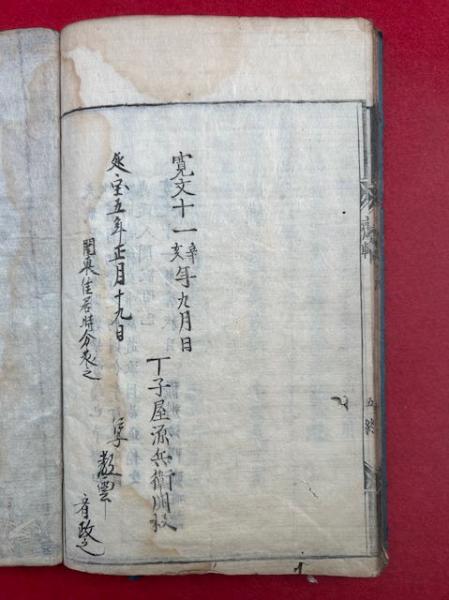 寛文十一辛亥年九月日
丁子屋源兵衛開板
延宝五年正月十九日
関東住居時分求之
教雲
五 終